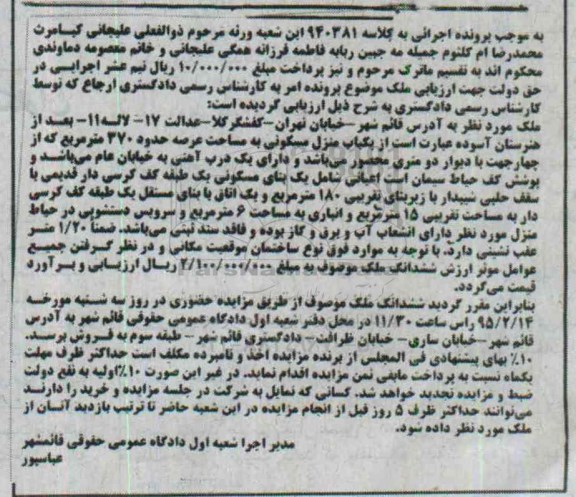 به موجب پرونده اجرائی به کلاسه ۹۴۰۳۸۱ این شعبه ورثه مرحوم ذوالفعلی علیجانی کیامرث
محمدرضا ام کلثوم جمیله مه جبین ربابه فاطمه فرزانه همگی علیجانی و خانم معصومه دماوندی
محکوم اند به تقسیم ماترک مرحوم و نیز پرداخت مبلغ ۱۰/۰۰۰/۰۰۰ ریال نیم عشر اجرایی در
حق دولت جهت ارزیابی ملک موضوع پرونده امر به کارشناس رسمی دادگستری ارجاع که توسط
کارشناس رسمی دادگستری به شرح ذیل ارزیابی گردیده است:
ملک مورد نظر به آدرس قائم شهر -خیابان تهران-کفشگرکلا-عدالت ۱۷- لاله۱۱- بعد از
هنرستان آسوده عبارت است از یکباب منزل مسکونی به مساحت عرصه حدود ۳۷۰ مترمربع که از
چهارجهت با دیوار دو متری محصور می‌باشد و دارای یک درب آهنی به خیابان عام می‌باشد و
پوشش کف حیاط سیمان است اعیانی شامل یک بنای مسکونی یک طبقه کف کرسی دار قدیمی با
سقف حلبی شیبدار با زیربنای تقریبی ۱۸۰ مترمربع و یک اتاق با بنای مستقل یک طبقه کف کرسی
دار به مساحت تقریبی ۱۵ مترمربع و انباری به مساحت ۶ مترمربع و سرویس دستشویی در حیاط
منزل مورد نظر دارای انشعاب آب و برق و گاز بوده و فاقد سند ثبتی می‌باشد. ضمناً ۱/۲۰ متر
عقب نشینی دارد. با توجه به موارد فوق نوع ساختمان موقعیت مکانی و در نظر گرفتن جمیع
عوامل موثر ارزش ششدانگ ملک موصوف به مبلغ ۲/۱۰۰/۰۰۰/۰۰۰ ریال ارزیابی و برآورد
قیمت می‌گردد.
بنابراین مقرر گردید ششدانگ ملک موصوف از طریق مزایده حضوری در روز سه شنبه مورخه
۹۵/۲/۱۴ راس ساعت ۱۱/۳۰ در محل دفتر شعبه اول دادگاه عمومی حقوقی قائم شهر به آدرس
قائم شهر -خیابان ساری- خیابان ظرافت- دادگستری قائم شهر - طبقه سوم به فروش برسد.
۱۰٪ بهای پیشنهادی فی المجلس از برنده مزایده اخذ و نامبرده مکلف است حداکثر ظرف مهلت
یکماه نسبت به پرداخت مابقی ثمن مزایده اقدام نماید. در غیر این صورت ۱۰٪اولیه به نفع دولت
ضبط و مزایده تجدید خواهد شد. کسانی که تمایل به شرکت در جلسه مزایده و خرید را دارند
می‌توانند حداکثر ظرف ۵ روز قبل از انجام مزایده در این شعبه حاضر تا ترتیب بازدید آنان از
ملک مورد نظر داده شود.
مدیر اجرا شعبه اول دادگاه عمومی حقوقی قائمشهر
عباسپور